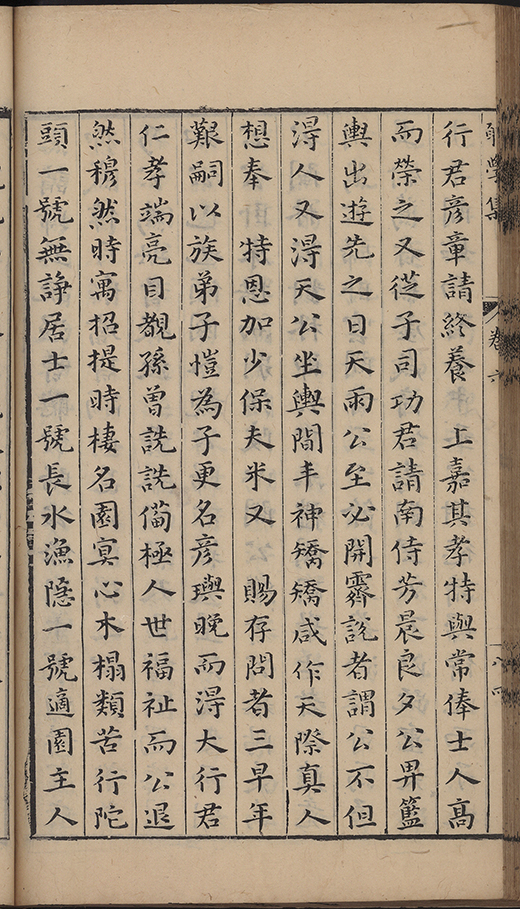 行君彦章請終養　上嘉其孝特與常俸士人高
而榮之又從子司功君請南侍芳晨良夕公畀籃
輿出遊先之日天雨公至必開霽說者謂公不但
得人又得天公坐輿閒丰神矯矯咸作天際真人
想奉　特恩加少保夫米又　賜存問者三早年
艱嗣以族弟子愷為子更名彦璵晚而得大行君
仁孝端亮目覩孫曾詵詵備極人世福祉而公退
然穆然時寓招提時棲名園冥心木榻類苦行陀
頭一號無諍居士一號長水漁隱一號適園主人
學集
卷六